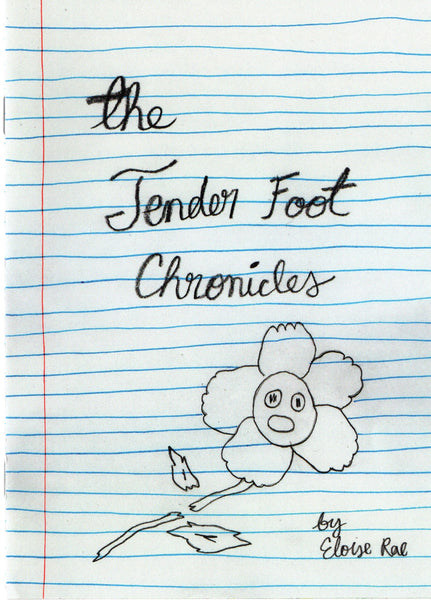 the
Tender Foot
Chronicles
by
Eloise Rae